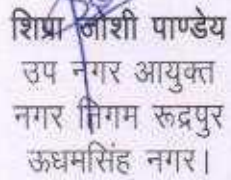 शिप्रा जोशी पाण्डेय
उप नगर आयुक्त
नगर निगम रूद्रपुर
ऊधमसिंह नगर।